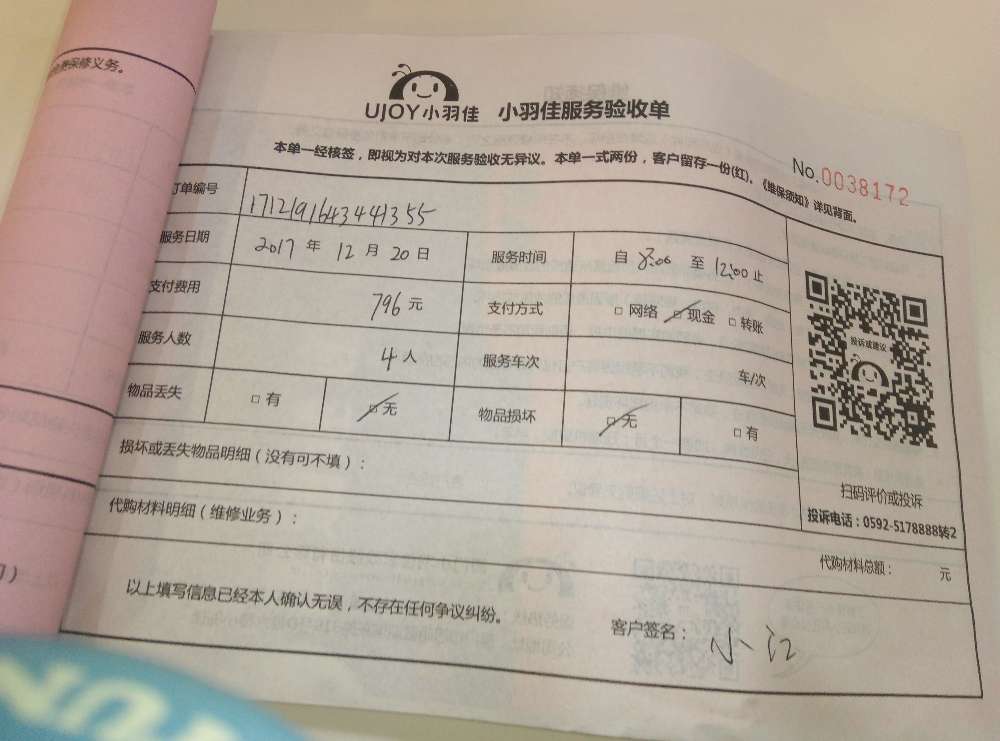 免费保修义务。
UJOY小羽佳 小羽佳服务验收单
本单一经核签，即视为对本次服务验收无异议。本单一式两份，客户留存一份(红)。《维保须知》详见背面。
No.0038172
订单编号 1712191643441355
服务日期 2017 年 12 月 20 日 服务时间 自 8:00 至 12:00 止
支付费用 796 元 支付方式 □ 网络 □ 现金 □ 转账
服务人数 4 人 服务车次 车/次
物品丢失 □ 有 □ 无 物品损坏 □ 无 □ 有
投诉或建议
扫码评价或投诉
投诉电话：0592-5178888转2
损坏或丢失物品明细（没有可不填）：
代购材料明细（维修业务）：
代购材料总额： 元
以上填写信息已经本人确认无误，不存在任何争议纠纷。
客户签名： 小江